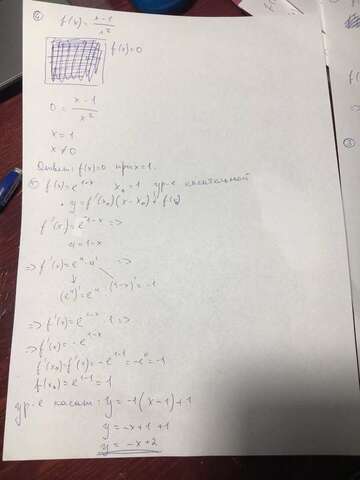 ⑥ f(x) = x-1 / x²
f(x)=0
0 = x-1 / x²
x=1
x≠0
Ответ: f(x)=0 при x=1.
f(x)=e^1-x x₀=1 ур-е касательной
• y=f'(x₀)(x-x₀)+f(x₀)
f'(x)=e^1-x =>
u=1-x
=> f'(x)=e^u·u' =>
(e^u)'=e^u (1-x)'=-1
=> f'(x)=e^1-x · 1 =>
=> f'(x)=-e^1-x
f'(x₀)=f'(x₀)=-e^1-1=-e^0=-1
f(x₀)=e^1-1=1
ур-е касат: y=-1(x-1)+1
y=-x+1+1
y=-x+2
③